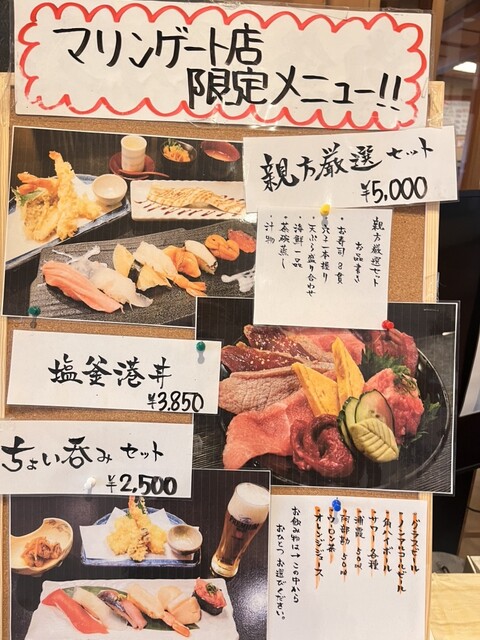 マリンゲート店
限定メニュー!!
親方厳選セット
¥5,000
親方厳選セット
お品書き
・お寿司 8貫
・穴子一本握り
・天ぷら盛り合わせ
・海鮮一品
・茶碗蒸し
・汁物
塩釜港丼
¥3,850
ちょい呑みセット
¥2,500
・グラスビール
・ノンアルコールビール
・角ハイボール
・サワー各種
・浦霞 50ml
・阿部勘 50ml
・ウーロン茶
・オレンジジュース
お飲み物はこの中から
おひとつお選びください。